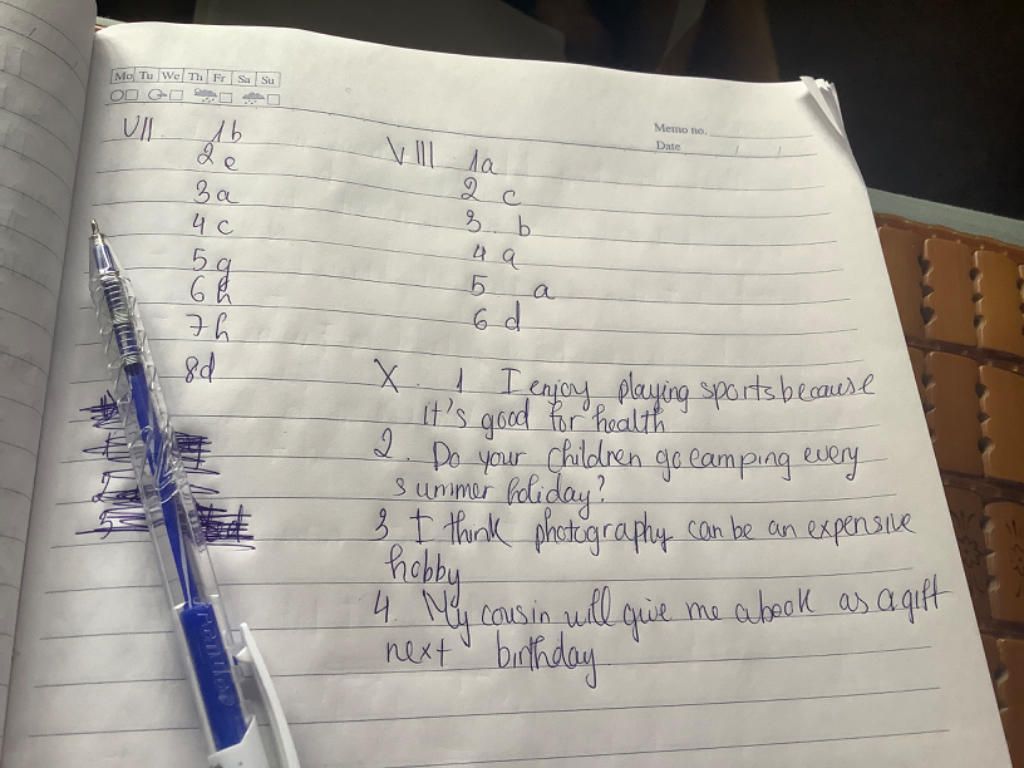 Mo Tu We Th Fr Sa Su
Memo no.
Date
VII 1b
2e
3a
4c
5g
6h
7h
8d
VIII 1a
2 c
3. b
4 a
5 a
6 d
X. 1 I enjoy playing sports because
it's good for health
2. Do your children go camping every
summer holiday?
3 I think photography can be an expensive
hobby
4. My cousin will give me a book as a gift
next birthday